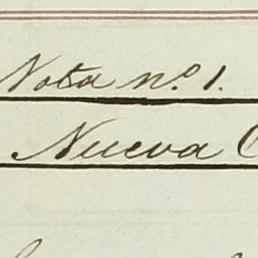 Nota n.º 1.
Nueva